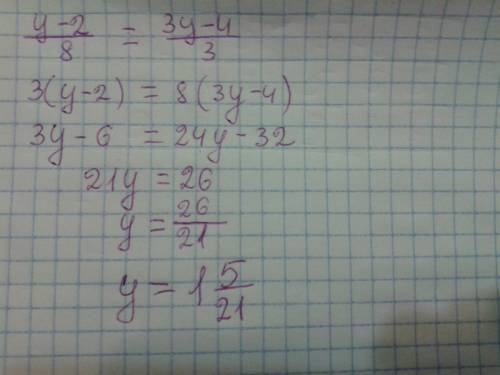 y-2/8 = 3y-4/3
3(y-2) = 8(3y-4)
3y-6 = 24y-32
21y = 26
y = 26/21
y = 1 5/21